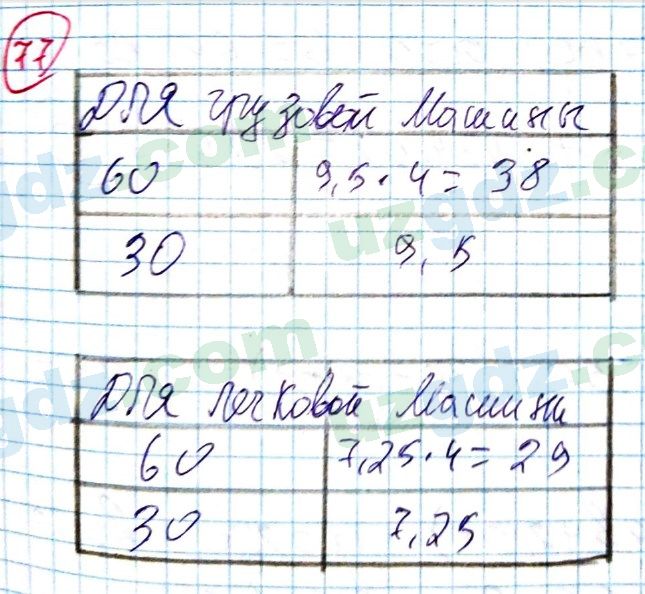 77
Для грузовой Машины
60 9,5 · 4 = 38
30 9,5
Для легковой Машины
60 7,25 · 4 = 29
30 7,25
uzgdz.com
uzgdz.com